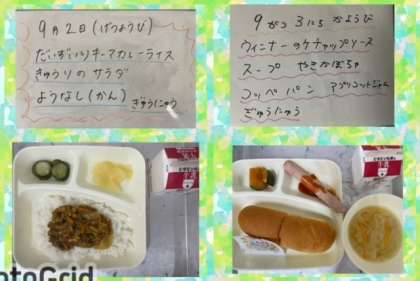 9月2日(げつようび)
だいずいりキーマカレーライス
きゅうりの サラダ
ようなし(かん)
ぎゅうにゅう
9がつ3にち かようび
ウィンナーのケチャップソース
スープ やきかぼちゃ
コッペパン アプリコットジャム
ぎゅうにゅう
otoGrid